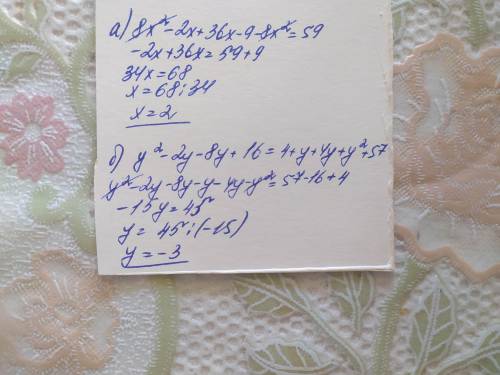 а) 8x² - 2x + 36x - 9 - 8x² = 59
-2x + 36x = 59 + 9
34x = 68
x = 68 : 34
x = 2
б) y² - 2y - 8y + 16 = 4 + y + 4y + y² + 57
y² - 2y - 8y - y - 4y - y² = 57 - 16 + 4
-15y = 45
y = 45 : (-15)
y = -3